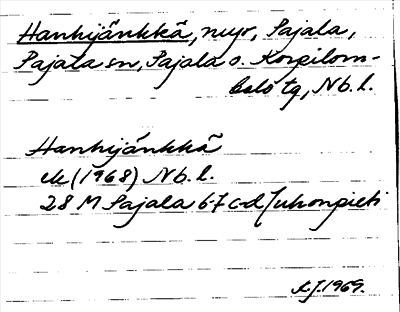 Hanhijänkkä, myr, Pajala,
Pajala sn, Pajala o. Korpilom-
bolo tg, Nb. l.
Hanhijänkkä
ek (1968) Nb. l.
28 M Pajala 6-7 c-d Juhonpieti
1969.